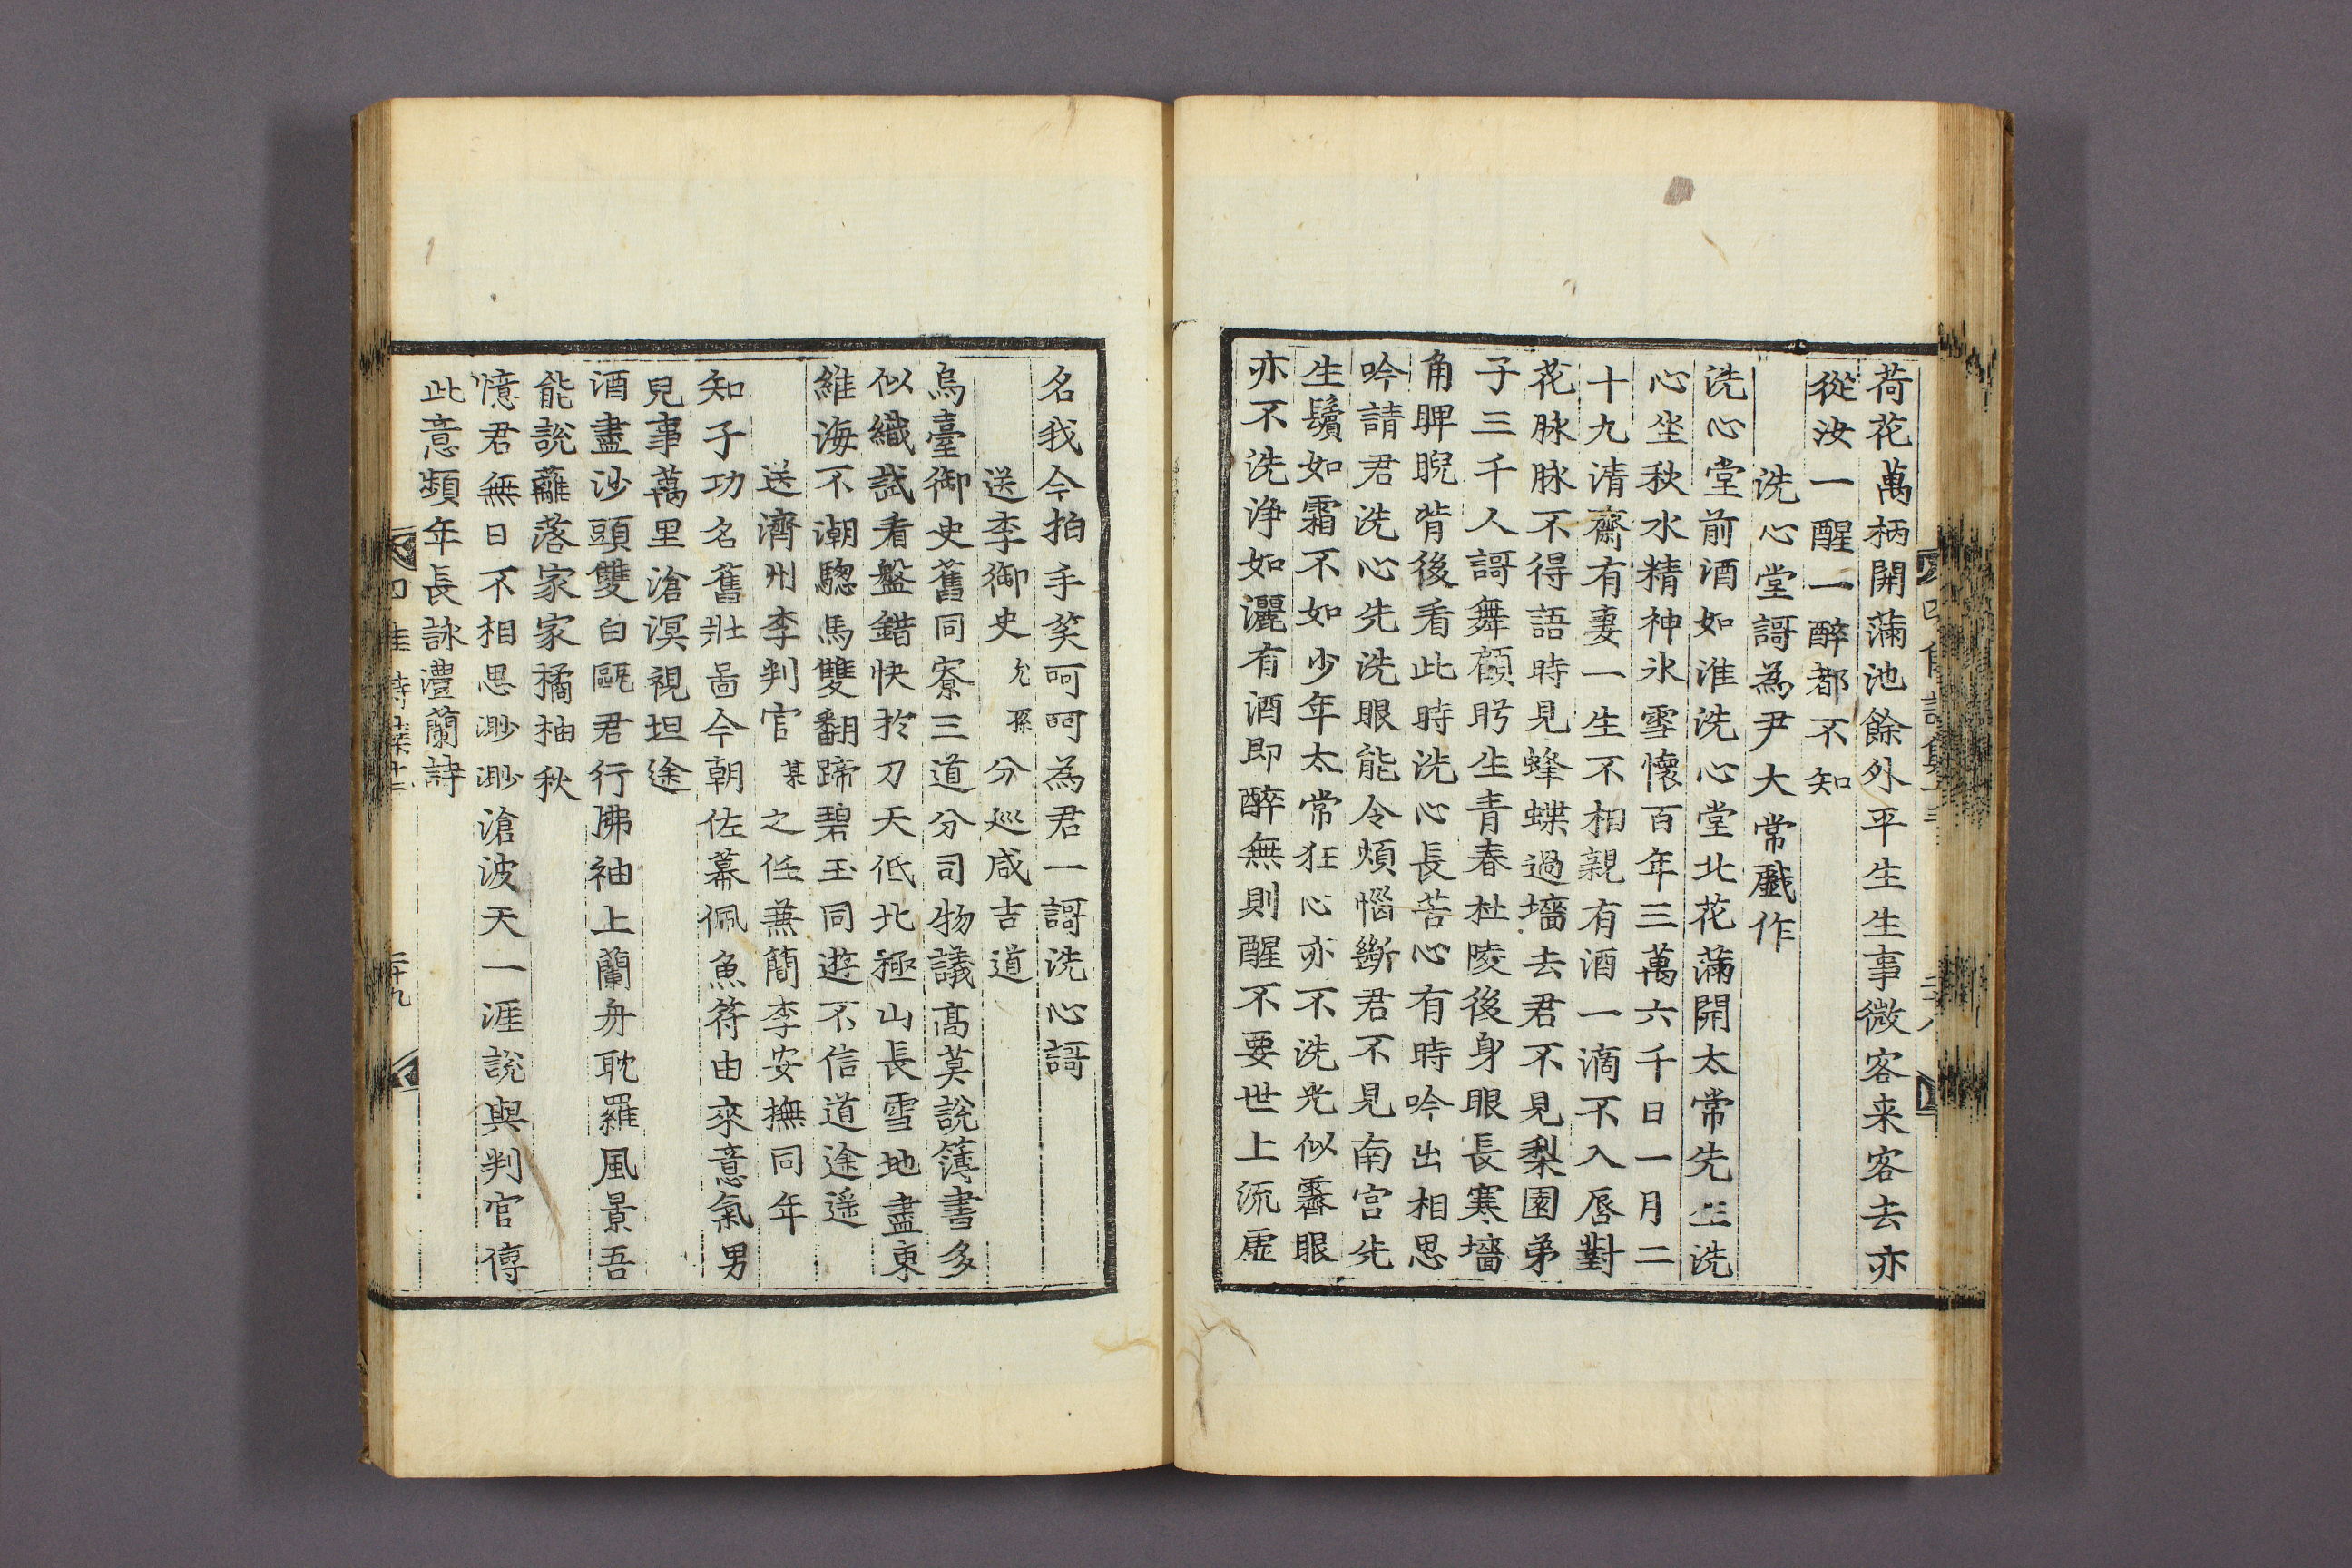 荷花萬柄開蒲池餘外平生生事微客来客去亦
從汝一醒一醉都不知
洗心堂謌為尹大常戱作
洗心堂前酒如淮洗心堂北花滿開太常先生洗
心坐秋水精神氷雪懷百年三萬六千日一月二
十九清齋有妻一生不相親有酒一滴不入唇對
花脉脉不得語時見蜂蝶過墻去君不見梨園弟
子三千人謌舞顧眄生青春杜陵後身眼長寒墻
角睥睨背後看此時洗心長苦心有時吟出相思
吟請君洗心先洗眼能令煩惱斷君不見南宫先
生鬚如霜不如少年太常狂心亦不洗光似霽眼
亦不洗浄如灑有酒即醉無則醒不要世上流虛
名我今拍手笑呵呵為君一謌洗心謌
送李御史允孫分巡咸吉道
烏臺御史舊同寮三道分司物議高莫說簿書多
似織試看盤錯快扵刀天低北極山長雪地盡東
維海不潮驄馬雙翻蹄碧玉同遊不信道途遥
送濟州李判官某之任兼簡李安撫同年
知子功名舊壯啚今朝佐幕佩魚符由來意氣男
兒事萬里滄溟視坦途
酒盡沙頭雙白甌君行拂袖上蘭舟耽羅風景吾
能說蘺落家家橘柚秋
憶君無日不相思渺渺滄波天一涯說與判官傳
此意頻年長詠澧蘭詩
二十九